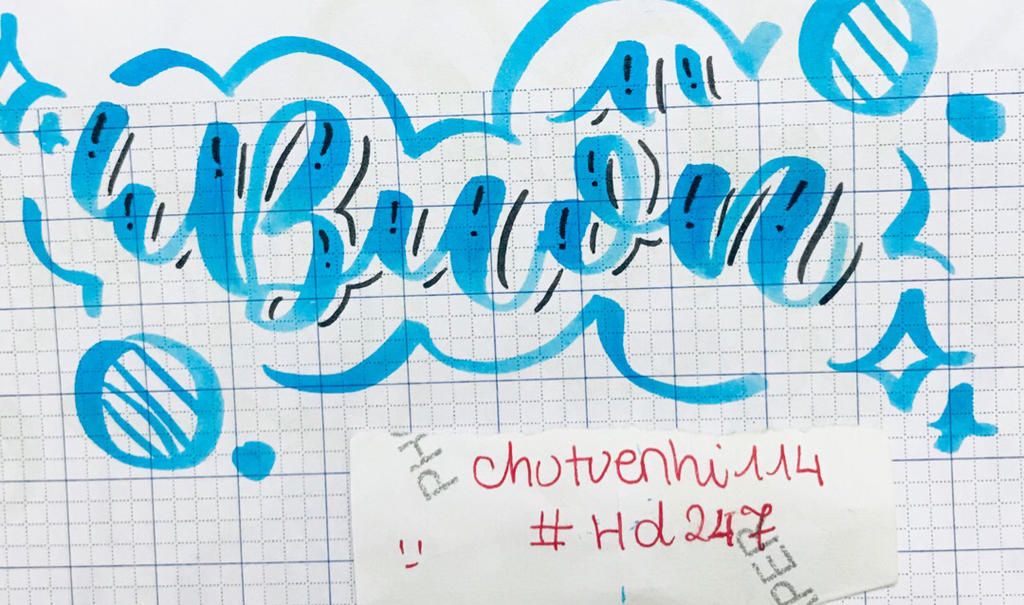 Buồn
PH
chutuenhi114
#Hd247
PER